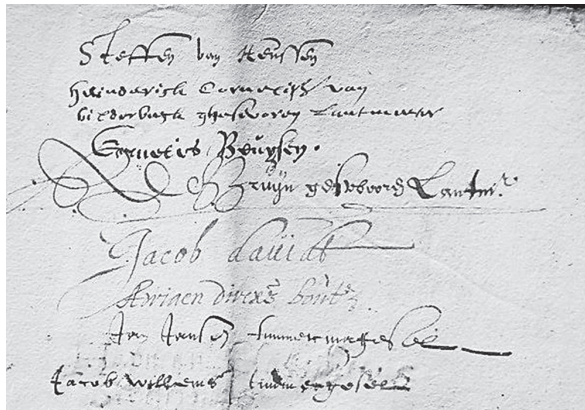 Steffen van Heussen
heinderick Cornelisz van
bilderbeeck ghesworen Lantmeter
Cornelis Buijsen.
Bruijn geswoore Lantmr.
Jacob davidt
Adriaen dircxs
Jan Jansen timmermagesel
Jacob Willems